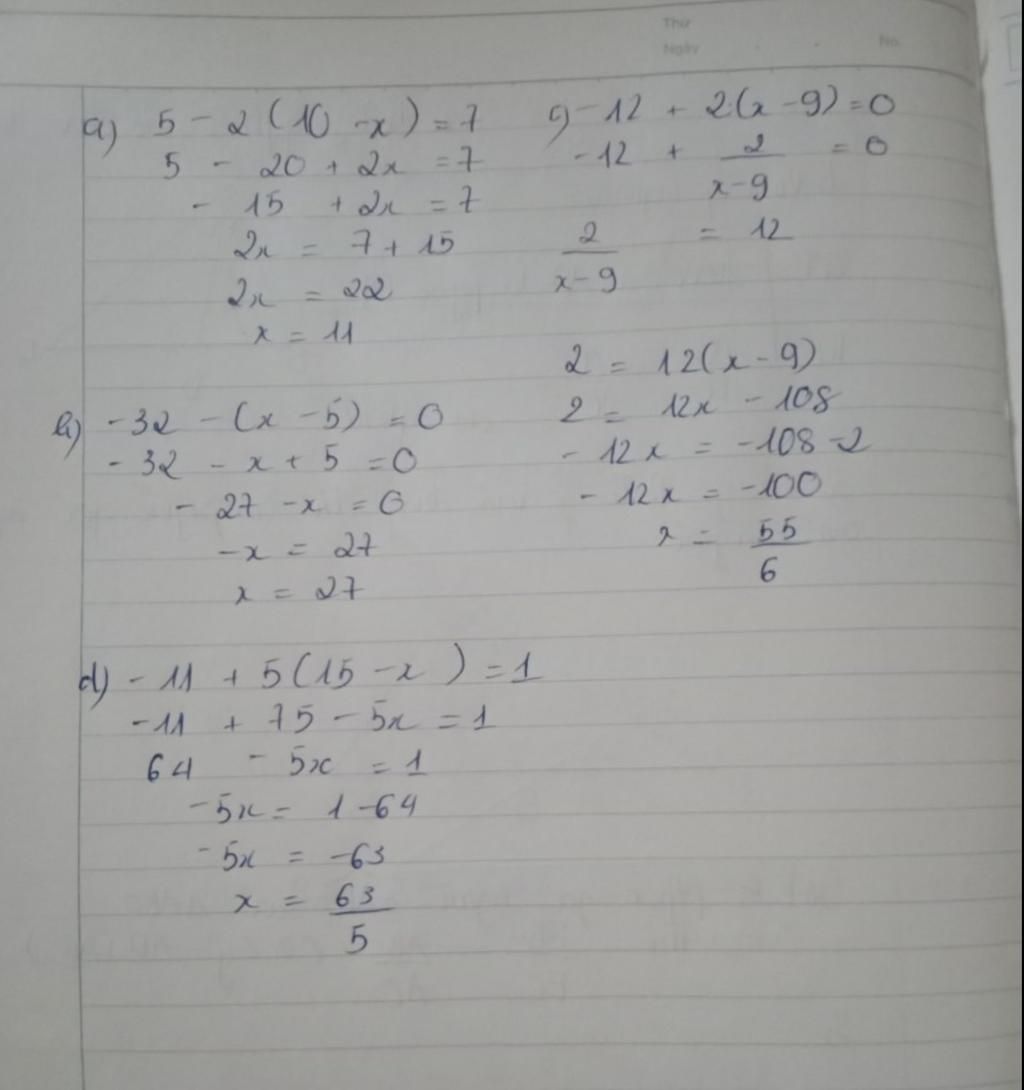 Thứ
Ngày
No.
a) 5 - 2 (10 - x) = 7
5 - 20 + 2x = 7
- 15 + 2x = 7
2x = 7 + 15
2x = 22
x = 11
b) -32 - (x - 5) = 0
- 32 - x + 5 = 0
- 27 - x = 0
-x = 27
x = 27
c) -12 + 2(x - 9) = 0
-12 + 2/(x-9) = 0
2/(x-9) = 12
2 = 12(x - 9)
2 = 12x - 108
- 12x = -108 - 2
- 12x = -100
x = 55/6
d) - 11 + 5(15 - x) = 1
-11 + 75 - 5x = 1
64 - 5x = 1
-5x = 1 - 64
-5x = -63
x = 63/5